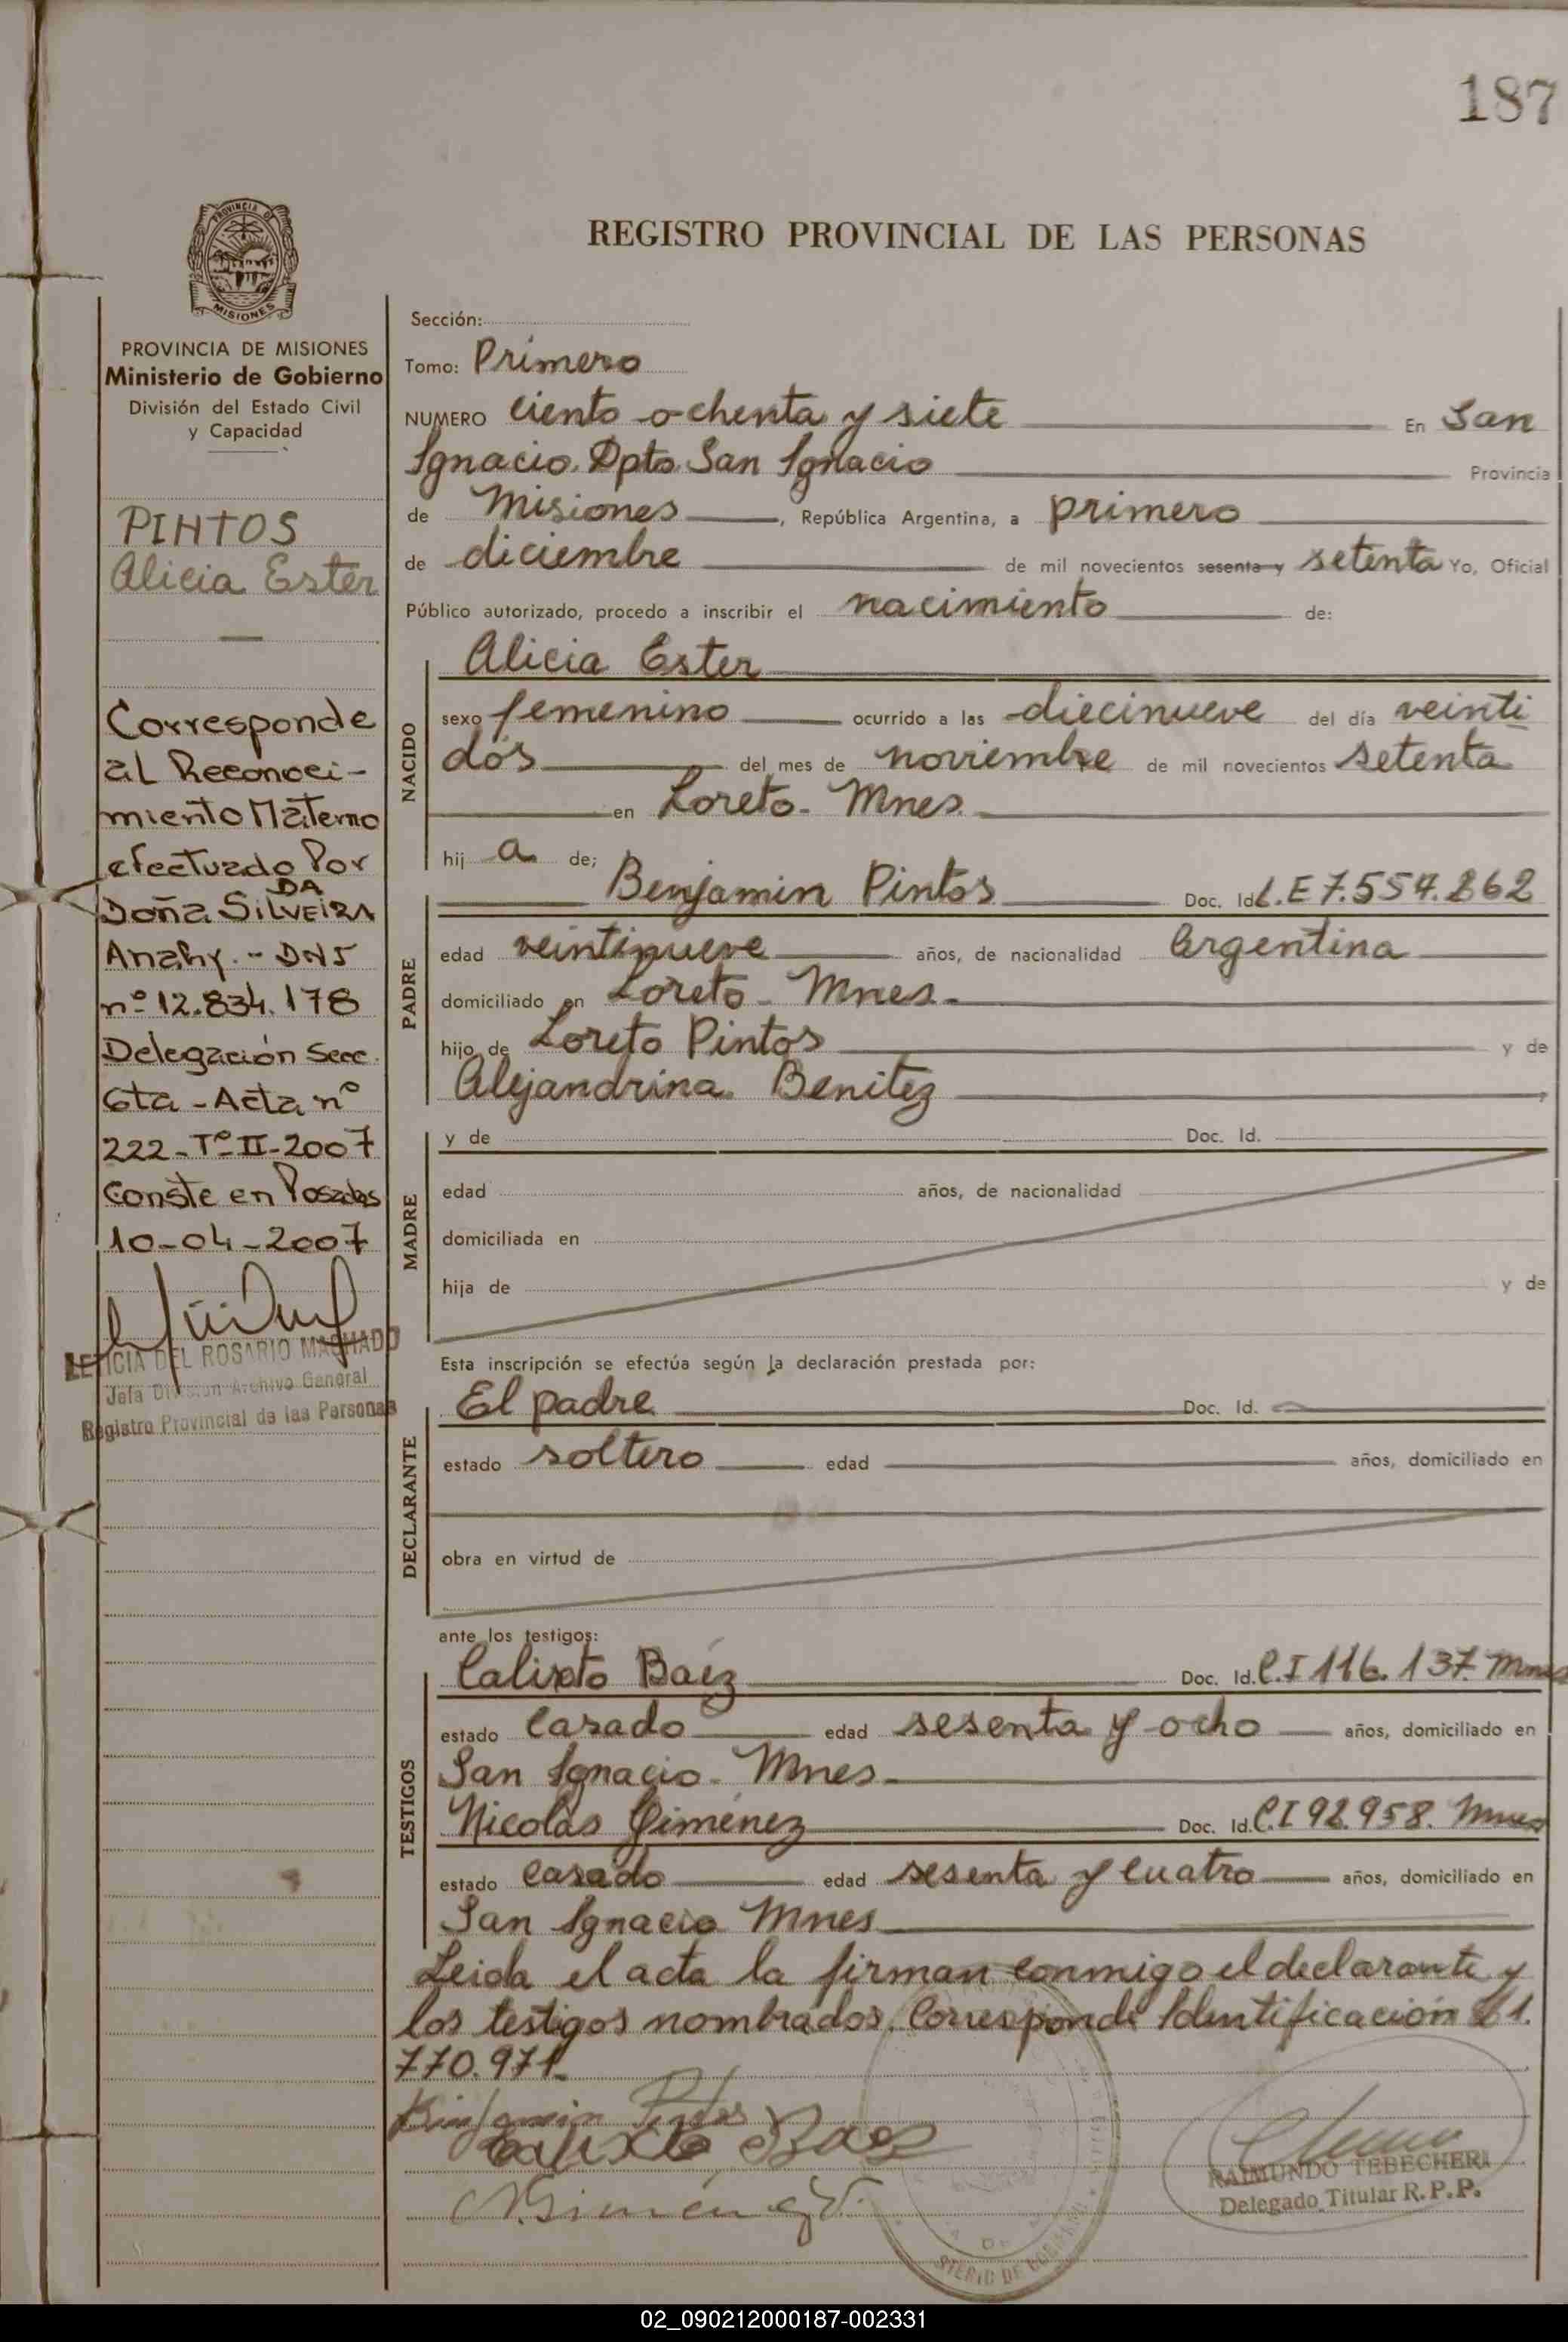 187
REGISTRO PROVINCIAL DE LAS PERSONAS
PROVINCIA DE
MISIONES
PROVINCIA DE MISIONES
Ministerio de Gobierno
División del Estado Civil
y Capacidad
PINTOS
Alicia Ester
Corresponde
al Reconoci-
miento Materno
efectuado Por
DA
Doña SILVEIRA
Anahy.- DNI
nº 12.834.178
Delegación Secc.
6ta - Acta nº
222 - Tº II - 2007
Conste en Posadas
10-04-2007
LETICIA DEL ROSARIO MACHADO
Jefa División Archivo General
Registro Provincial de las Personas
Sección:
Tomo: Primero
NUMERO ciento ochenta y siete En San
Ignacio. Dpto. San Ignacio Provincia
de Misiones, República Argentina, a primero
de diciembre de mil novecientos sesenta y setenta Yo, Oficial
Público autorizado, procedo a inscribir el nacimiento de:
NACIDO
Alicia Ester
sexo femenino ocurrido a las diecinueve del día veinti
dós del mes de noviembre de mil novecientos setenta
en Loreto - Mnes.
hij a de;
PADRE
Benjamin Pintos Doc. Id L.E 7.554.862
edad veintinueve años, de nacionalidad Argentina
domiciliado en Loreto - Mnes.
hijo de Loreto Pintos y de
Alejandrina Benitez
MADRE
y de Doc. Id.
edad años, de nacionalidad
domiciliada en
hija de y de
Esta inscripción se efectúa según la declaración prestada por:
DECLARANTE
El padre Doc. Id.
estado soltero edad años, domiciliado en
obra en virtud de
ante los testigos:
TESTIGOS
Calixto Baéz Doc. Id. C.I 116.137. Mnes
estado casado edad sesenta y ocho años, domiciliado en
San Ignacio - Mnes.
Nicolás Giménez Doc. Id. C.I 92.958. Mnes
estado casado edad sesenta y cuatro años, domiciliado en
San Ignacio Mnes
Leida el acta la firman conmigo el declarante y
los testigos nombrados. Corresponde Identificación 21.
770.971.
Benjamin Pintos
Calixto Baez
N. Giménez
RAIMUNDO TEBECHERI
Delegado Titular R. P. P.
02_090212000187-002331